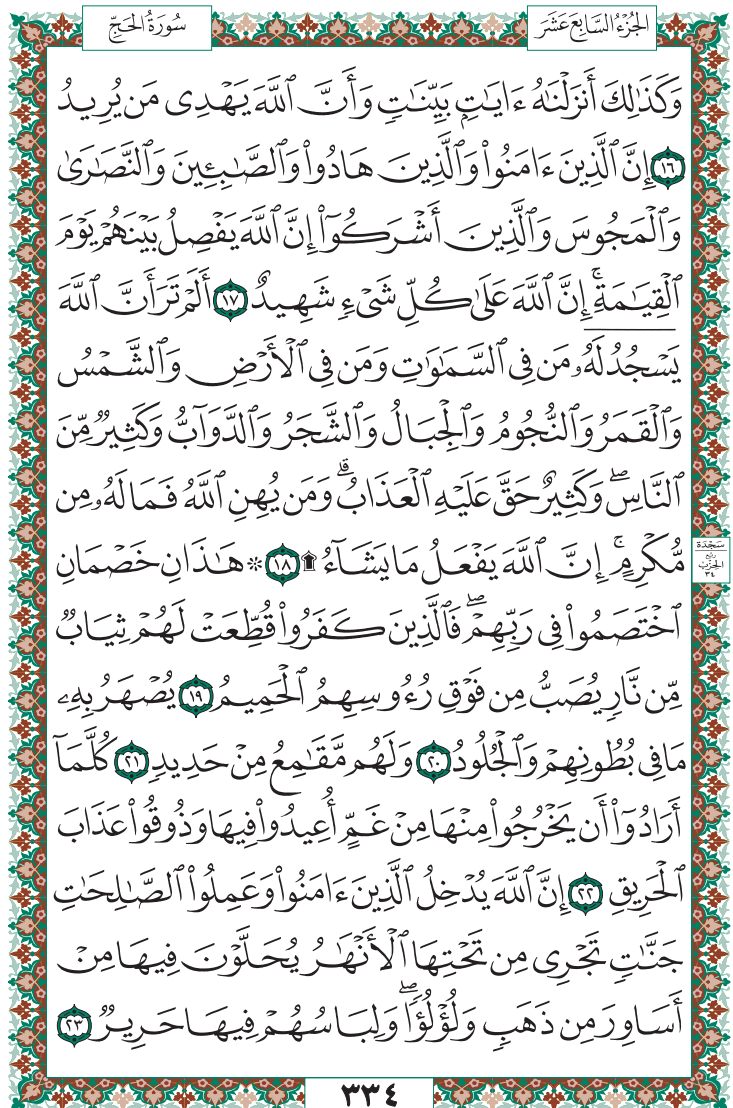 الجُزْءُ السَّابِعَ عَشَرَ
سُورَةُ الحَجِّ
وَكَذَٰلِكَ أَنزَلْنَٰهُ ءَايَٰتٍۭ بَيِّنَٰتٍ وَأَنَّ ٱللَّهَ يَهْدِى مَن يُرِيدُ
١٦ إِنَّ ٱلَّذِينَ ءَامَنُوا۟ وَٱلَّذِينَ هَادُوا۟ وَٱلصَّٰبِـِٔينَ وَٱلنَّصَٰرَىٰ
وَٱلْمَجُوسَ وَٱلَّذِينَ أَشْرَكُوٓا۟ إِنَّ ٱللَّهَ يَفْصِلُ بَيْنَهُمْ يَوْمَ
ٱلْقِيَٰمَةِ ۚ إِنَّ ٱللَّهَ عَلَىٰ كُلِّ شَىْءٍ شَهِيدٌ ١٧ أَلَمْ تَرَ أَنَّ ٱللَّهَ
يَسْجُدُ لَهُۥ مَن فِى ٱلسَّمَٰوَٰتِ وَمَن فِى ٱلْأَرْضِ وَٱلشَّمْسُ
وَٱلْقَمَرُ وَٱلنُّجُومُ وَٱلْجِبَالُ وَٱلشَّجَرُ وَٱلدَّوَآبُّ وَكَثِيرٌ مِّنَ
ٱلنَّاسِ ۖ وَكَثِيرٌ حَقَّ عَلَيْهِ ٱلْعَذَابُ ۗ وَمَن يُهِنِ ٱللَّهُ فَمَا لَهُۥ مِن
مُّكْرِمٍ ۚ إِنَّ ٱللَّهَ يَفْعَلُ مَا يَشَآءُ ۩ ١٨ ۞ هَٰذَانِ خَصْمَانِ
ٱخْتَصَمُوا۟ فِى رَبِّهِمْ ۖ فَٱلَّذِينَ كَفَرُوا۟ قُطِّعَتْ لَهُمْ ثِيَابٌ
مِّن نَّارٍ يُصَبُّ مِن فَوْقِ رُءُوسِهِمُ ٱلْحَمِيمُ ١٩ يُصْهَرُ بِهِۦ
مَا فِى بُطُونِهِمْ وَٱلْجُلُودُ ٢٠ وَلَهُم مَّقَٰمِعُ مِنْ حَدِيدٍ ٢١ كُلَّمَآ
أَرَادُوٓا۟ أَن يَخْرُجُوا۟ مِنْهَا مِنْ غَمٍّ أُعِيدُوا۟ فِيهَا وَذُوقُوا۟ عَذَابَ
ٱلْحَرِيقِ ٢٢ إِنَّ ٱللَّهَ يُدْخِلُ ٱلَّذِينَ ءَامَنُوا۟ وَعَمِلُوا۟ ٱلصَّٰلِحَٰتِ
جَنَّٰتٍ تَجْرِى مِن تَحْتِهَا ٱلْأَنْهَٰرُ يُحَلَّوْنَ فِيهَا مِنْ
أَسَاوِرَ مِن ذَهَبٍ وَلُؤْلُؤًا ۖ وَلِبَاسُهُمْ فِيهَا حَرِيرٌ ٢٣
سَجْدَة
ربع
الحِزْب
٣٤
٣٣٤